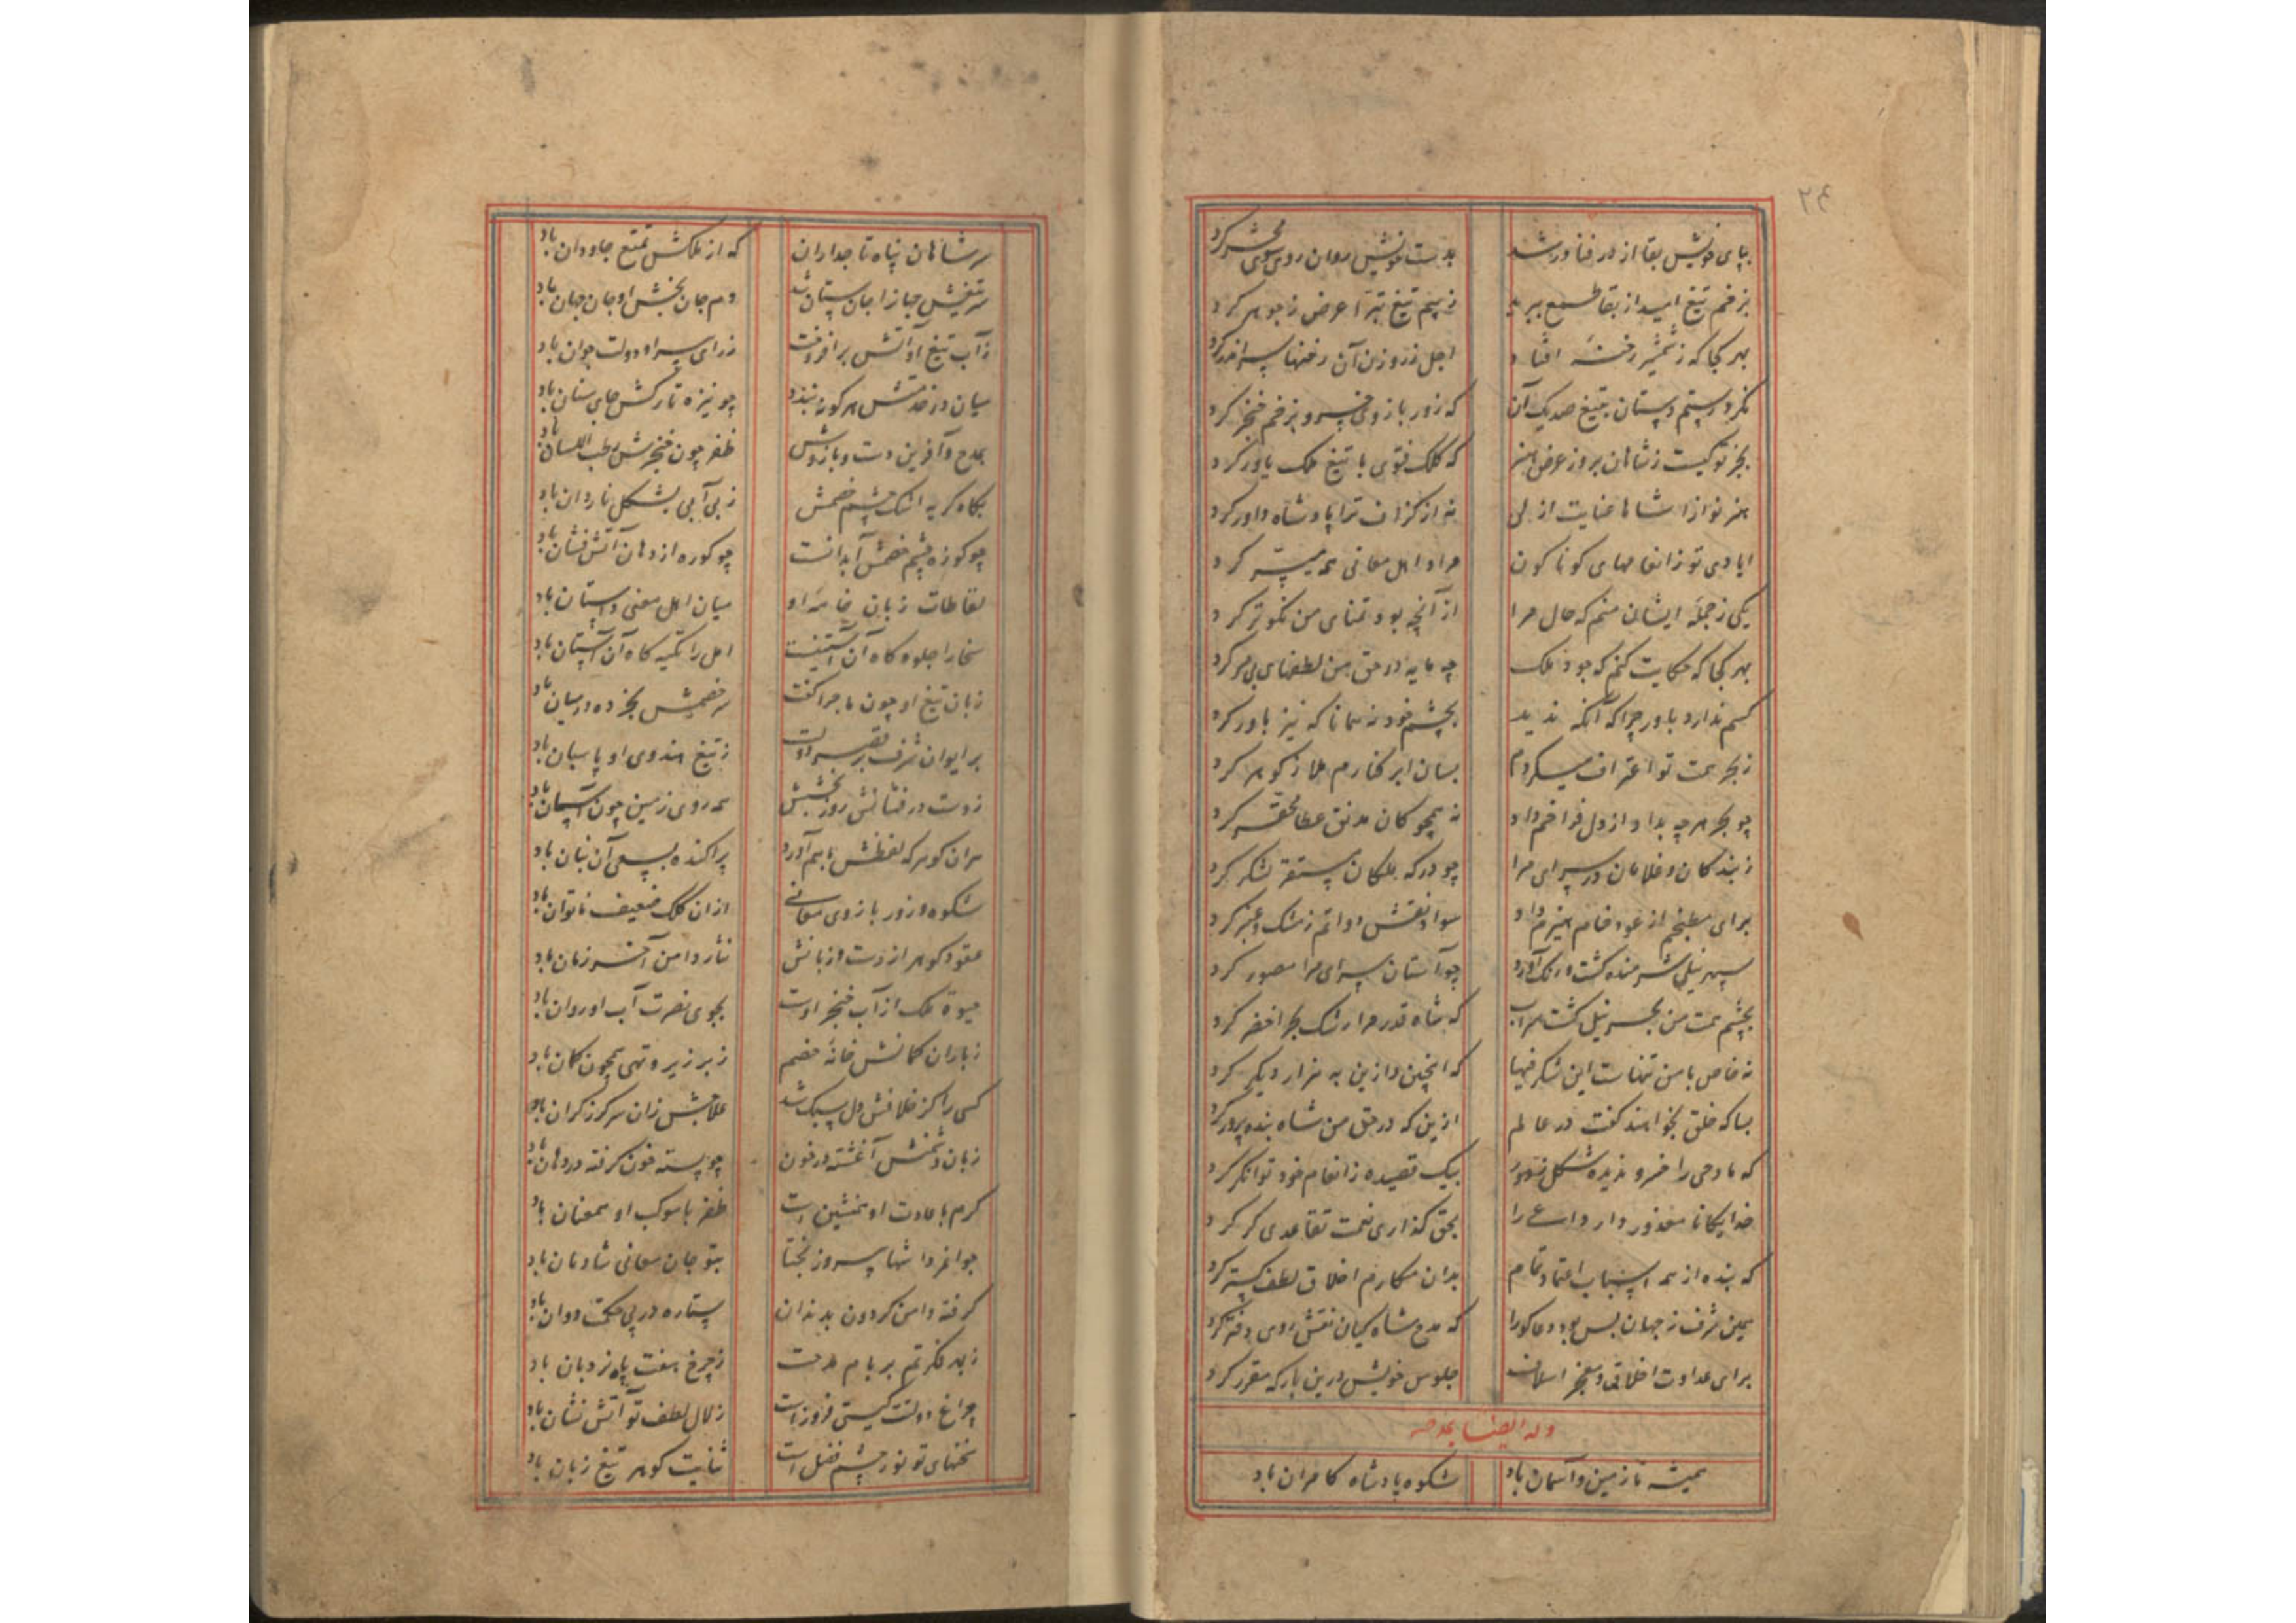 بپای خویش بقا از در فنا در شد بدست خویش روان روی سوی محشر کرد
بزخم تیغ امید از بقا طمع ببرید ز بیم تیغ تبرا عرض ز جوهر کرد
بهر کجا که ز شمشیر رخنهٔ افتاد اجل ز روزن آن رخنها سر اندر کرد
نکرد رستم دستان بتیغ صد یک آن که زور بازوی خسرو بزخم خنجر کرد
بجز تو کیست ز شاهان بروز عرض هنر که کلک فتوی با تیغ ملک یاور کرد
هنر نوازا شاها عنایت ازلی نه از گزاف ترا پادشاه داور کرد
ایادی تو ز انعامهای کوناکون مراد اهل معانی همه میسر کرد
یکی ز جملهٔ ایشان منم که حال مرا از آنچه بود تمنای من نکوتر کرد
بهر کجا که حکایت کنم که جود ملک چه مایه در حق من لطفهای بی مر کرد
کسم ندارد باور چرا که آنکه ندید بچشم خود نه همانا که نیز باور کرد
ز بحر همت تو اغتراف میکردم بسان ابر کنارم ملا ز کوهر کرد
چو بحر هر چه بداد از دل فراخم داد نه همچو کان مدنق عطا محقر کرد
ز بندکان و غلامان در سرای مرا چو درکه ملکان مستقر لشکر کرد
برای مطبخم از عود خام هیزم داد سواد نقش دواتم ز مشک و عنبر کرد
سپهر نیلی شرمنده کشت و رنک آورد چو آستان سرای مرا مصور کرد
بچشم همت من بحر نیل کشت سراب که شاه قدر مرا رشک بحر اخضر کرد
نه خاص با من تنهاست این شکرفیها که اینچنین و ازین به هزار دیکر کرد
بسا که خلق بخواهند کفت در عالم ازین که در حق من شاه بنده پرور کرد
که مادحی را خسرو ندیده شکل و صور بیک قصیده ز انعام خود توانکر کرد
خدایکانا معذور دار داعی را بحق کذاری نعمت تقاعدی کر کرد
که بنده از همه اسباب اعتماد تمام بدان مکارم اخلاق لطف کستر کرد
همین شرف ز جهان بس بود دعاکو را که مدح شاه کیان نقش روی دفتر کرد
برای مداوت اخلاقی و معجز اسلاف جلوس خویش درین بارکه مقرر کرد
وله ایضا یمدحه
همیشه تا زمین و آسمان باد شکوه پادشاه کامران باد
۲۶
سر شاهان پناه تاجداران که از ملکش تمتع جاودان باد
سر تیغش جهانرا جان ستان شد دم جان بخش او جان جهان باد
ز آب تیغ او آتش برافروخت ز رای پیر او دولت جوان باد
میان در خدمتش هر کو نبندد چو نیزه تارکش جای سنان باد
بمدح و آفرین دست و بازوش ظفر چون خنجرش رطب اللسان باد
بکاه کریه اشک چشم خصمش ز بی آبی بشکل ناردان باد
چو کوزه چشم خصمش آبدانست چو کوره از دهان آتش فشان باد
لقاطات زبان خامهٔ او میان اهل معنی داستان باد
سخا را جلوه کاه آن آستینست امل را تکیه کاه آن آستان باد
زبان تیغ او چون ماجرا کفت سر خصمش بخرده در میان باد
بر ایوان شرف بر قصر دولت ز تیغ هندوی او پاسبان باد
ز دست درفشانش روز بخشش همه روی زمین چون آسمان باد
هر آن کوهر که لفظش با هم آورد پراکنده بسعی آن بنان باد
شکوه و زور بازوی معانی از آن کلک ضعیف ناتوان باد
عقود کوهر از دست و زبانش نثار دامن آخر زمان باد
حیوة ملک از آب خنجر اوست بجوی نصرت آب او روان باد
ز باران کمانش خانهٔ خصم زبر زیر و تهی همچون کمان باد
کسی را کز خلافش دل سبک شد علاجش زان سر کرز کران باد
زبان دشمنش آغشته در خون چو پسته خون کرفته در دهان باد
کرم با عادت او همنشین است ظفر با موکب او همعنان باد
جوانمردا شها پیروز بختا بتو جان معانی شادمان باد
کرفته دامن کردون بدندان ستاره در پی حکمت دوان باد
ز بهر فکرتم بر بام مدحت ز چرخ هفت پایه نردبان باد
چراغ دولتت کیتی فروز است زلال لطف تو آتش نشان باد
سخنهای تو نور چشم فضل است ثنایت کوهر تیغ زبان باد